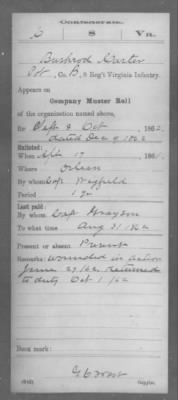 Confederate.
C 8 Va.
Bushrod Carter
Pvt, Co. B, 8 Reg't Virginia Infantry.
Appears on
Company Muster Roll
of the organization named above,
for Sept & Oct, 1862.
dated Dec 9 1862
Enlisted:
When Sept 17, 1861.
Where Orlean
By whom Capt
Period 1 yr
Last paid:
By whom Capt Grayson
To what time Aug 31, 1862
Present or absent Present
Remarks: wounded in action
June 27/62. Returned
to duty Oct 1/62
Book mark:
Copyist.